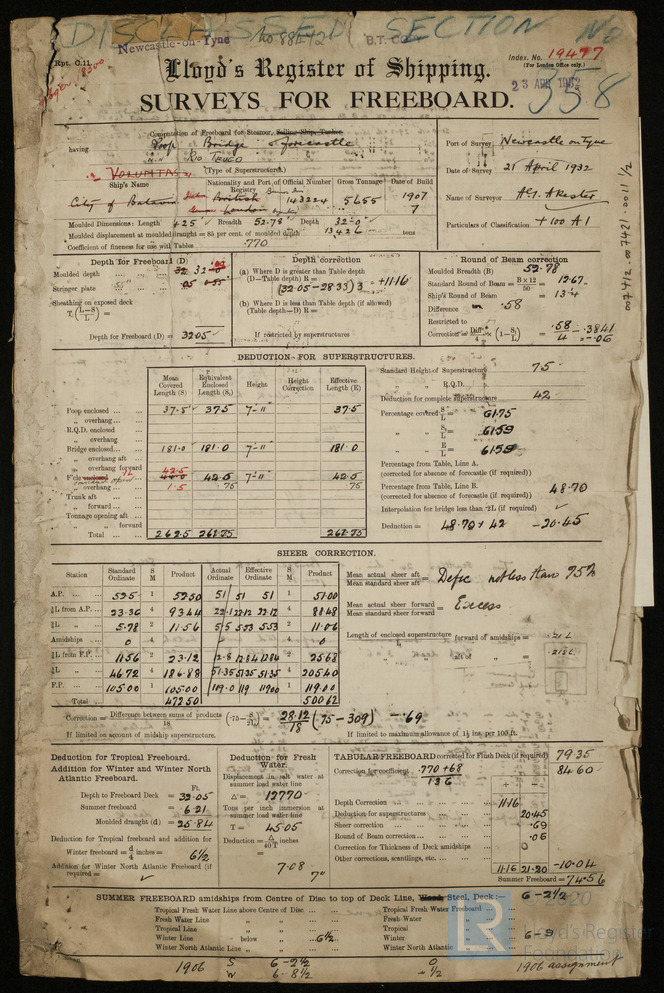 DISCLASSED SECTION No
Newcastle-on-Tyne No 88472 B.T. Co
Rpt. C.11.
Index. No. 19477
(For London Office only.)
Lloyd's Register of Shipping.
23 APR 1932
358
SURVEYS FOR FREEBOARD.
Computation of Freeboard for Steamer, Sailing Ship, Tanker,
having Poop Bridge Forecastle
(Type of Superstructures.)
Port of Survey Newcastle on Tyne
Date of Survey 21 April 1932
Name of Surveyor
Particulars of Classification +100 A1
Ship's Name
Nationality and Port of Registry
Official Number
Gross Tonnage
Date of Build
City of Batavia
British
London
143224
5655
1907
7
Moulded Dimensions: Length 425 Breadth 52.78 Depth 32-0
Moulded displacement at moulded draught = 85 per cent. of moulded depth 13426 tons
Coefficient of fineness for use with Tables .770
Depth for Freeboard (D)
Moulded depth
Stringer plate
Sheathing on exposed deck
T (L-S/L) =
Depth for Freeboard (D) = 32.05
Depth correction
(a) Where D is greater than Table depth
(D-Table depth) R =
(32.05-28.33) 3 = +11.16
(b) Where D is less than Table depth (if allowed)
(Table depth-D) R =
If restricted by superstructures
Round of Beam correction
Moulded Breadth (B) 52.78
Standard Round of Beam = B x 12 / 50 = 12.67
Ship's Round of Beam = 13.4
Difference .58
Restricted to
Correction = Diff/4 x (1 - S/L) = .58/4 .3841 = -.06
DEDUCTION FOR SUPERSTRUCTURES.
Mean Covered Length (S)
Equivalent Enclosed Length (S₁)
Height
Height Correction
Effective Length (E)
Poop enclosed 37.5 37.5 7-11 37.5
„ overhang
R.Q.D. enclosed
„ overhang
Bridge enclosed 181.0 181.0 7-11 181.0
„ overhang aft
„ overhang forward
F'cle enclosed 42.5 42.5 7-11 42.5
„ overhang 1.5 .75 .75
Trunk aft
„ forward
Tonnage opening aft
„ „ forward
Total 262.5 261.75 261.75
Standard Height of Superstructure 7.5
„ „ R.Q.D.
Deduction for complete superstructure 42
Percentage covered S/L = 61.75
„ „ S₁/L = 61.59
„ „ E/L = 61.59
Percentage from Table, Line A.
(corrected for absence of forecastle (if required))
Percentage from Table, Line B. 48.70
(corrected for absence of forecastle (if required))
Interpolation for bridge less than ·2L (if required)
Deduction = 48.70 x 42 -20.45
SHEER CORRECTION.
Station
Standard Ordinate
S M
Product
Actual Ordinate
Effective Ordinate
S M
Product
A.P. 52.5 1 52.50 51 51 51 1 51.00
⅙L from A.P. 23.36 4 93.44 22.1 22.12 22.12 4 88.48
⅓L „ 5.78 2 11.56 5.5 5.53 5.53 2 11.06
Amidships 0 4 0 4 0
⅓L from F.P. 11.56 2 23.12 12.8 12.84 12.84 2 25.68
⅙L „ 46.72 4 186.88 51.35 51.35 51.35 4 205.40
F.P. 105.00 1 105.00 119.0 119 119.00 1 119.00
Total 472.50 500.62
Mean actual sheer aft / Mean standard sheer aft = Defic not less than 75%
Mean actual sheer forward / Mean standard sheer forward = Excess
Length of enclosed superstructure forward of amidships =
„ „ aft of „ =
Correction = Difference between sums of products / 18 (·75 - S/2L) = 28.12/18 (.75 - .309) -.69
If limited on account of midship superstructure.
If limited to maximum allowance of 1½ ins. per 100 ft.
Deduction for Tropical Freeboard.
Addition for Winter and Winter North Atlantic Freeboard.
Ft.
Depth to Freeboard Deck = 32.05
Summer freeboard = 6.21
Moulded draught (d) = 25.84
Deduction for Tropical freeboard and addition for Winter freeboard = d/4 inches = 6½
Addition for Winter North Atlantic Freeboard (if required) =
Deduction for Fresh Water.
Displacement in salt water at summer load water line
Δ = 12770
Tons per inch immersion at summer load water line
T = 45.05
Deduction = Δ/40T inches
= 7.08
7"
TABULAR FREEBOARD corrected for Flush Deck (if required) 79.35
Correction for coefficient .770 + .68 / 1.36 84.60
+ -
Depth Correction 11.16
Deduction for superstructures 20.45
Sheer correction .69
Round of Beam correction .06
Correction for Thickness of Deck amidships
Other corrections, scantlings, etc.
11.16 21.20 -10.04
Summer Freeboard = 74.56
SUMMER FREEBOARD amidships from Centre of Disc to top of Deck Line, Wood Steel, Deck:— 6-2½
Tropical Fresh Water Line above Centre of Disc
Fresh Water Line „ „
Tropical Line „ „
Winter Line below „ 6½
Winter North Atlantic Line „ „
Tropical Fresh Water Freeboard
Fresh Water „
Tropical „
Winter „ 6-9
Winter North Atlantic „
1906 S 6-2½ 0
W 6-8½ -½ 1906 assignment
© 2020
LR
Lloyd's Register
Foundation